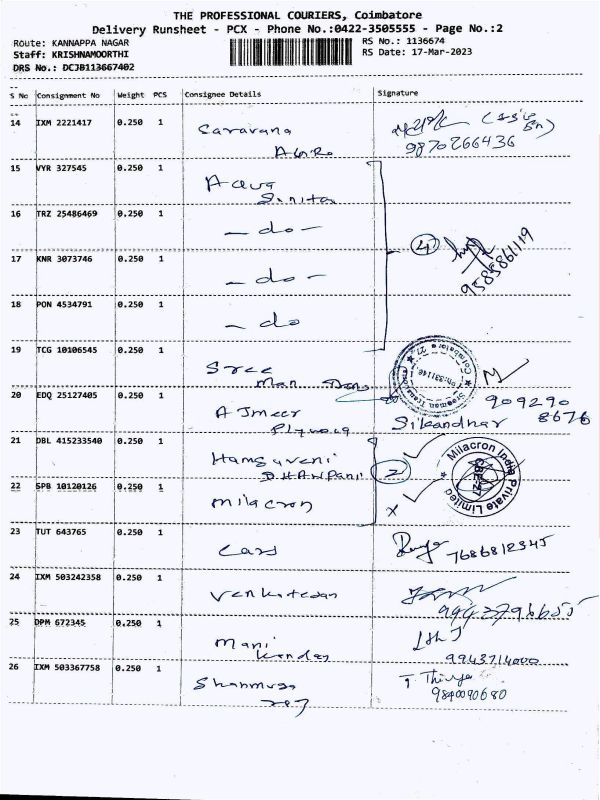 THE PROFESSIONAL COURIERS, Coimbatore
Delivery Runsheet - PCX - Phone No.:0422-3505555 - Page No.:2
Route: KANNAPPA NAGAR
RS No.: 1136674
Staff: KRISHNAMOORTHI
RS Date: 17-Mar-2023
DRS No.: DCJB113667402
S No Consignment No Weight PCS Consignee Details Signature
14 IXM 2221417 0.250 1 Saravana
9870266436
15 VYR 327545 0.250 1 Aqua
16 TRZ 25486469 0.250 1 - do -
4
9585861119
17 KNR 3073746 0.250 1 - do -
18 PON 4534791 0.250 1 - do
19 TCG 10106545 0.250 1 Sree
Coimbatore
20 EDQ 25127405 0.250 1 AJmeer
Plywood
909290
8676
Sikandhar
21 DBL 415233540 0.250 1 Hamsaveni
DHANPANI
2
Milacron India Private Limited
22 SPB 10120126 0.250 1 milacron
X
23 TUT 643765 0.250 1 Cars
7686812345
24 IXM 503242358 0.250 1 Venkatesan
25 DPM 672345 0.250 1 Mani
Kandan
9943714000
26 IXM 503367758 0.250 1 Shanmuga
T Thivya
9840090680